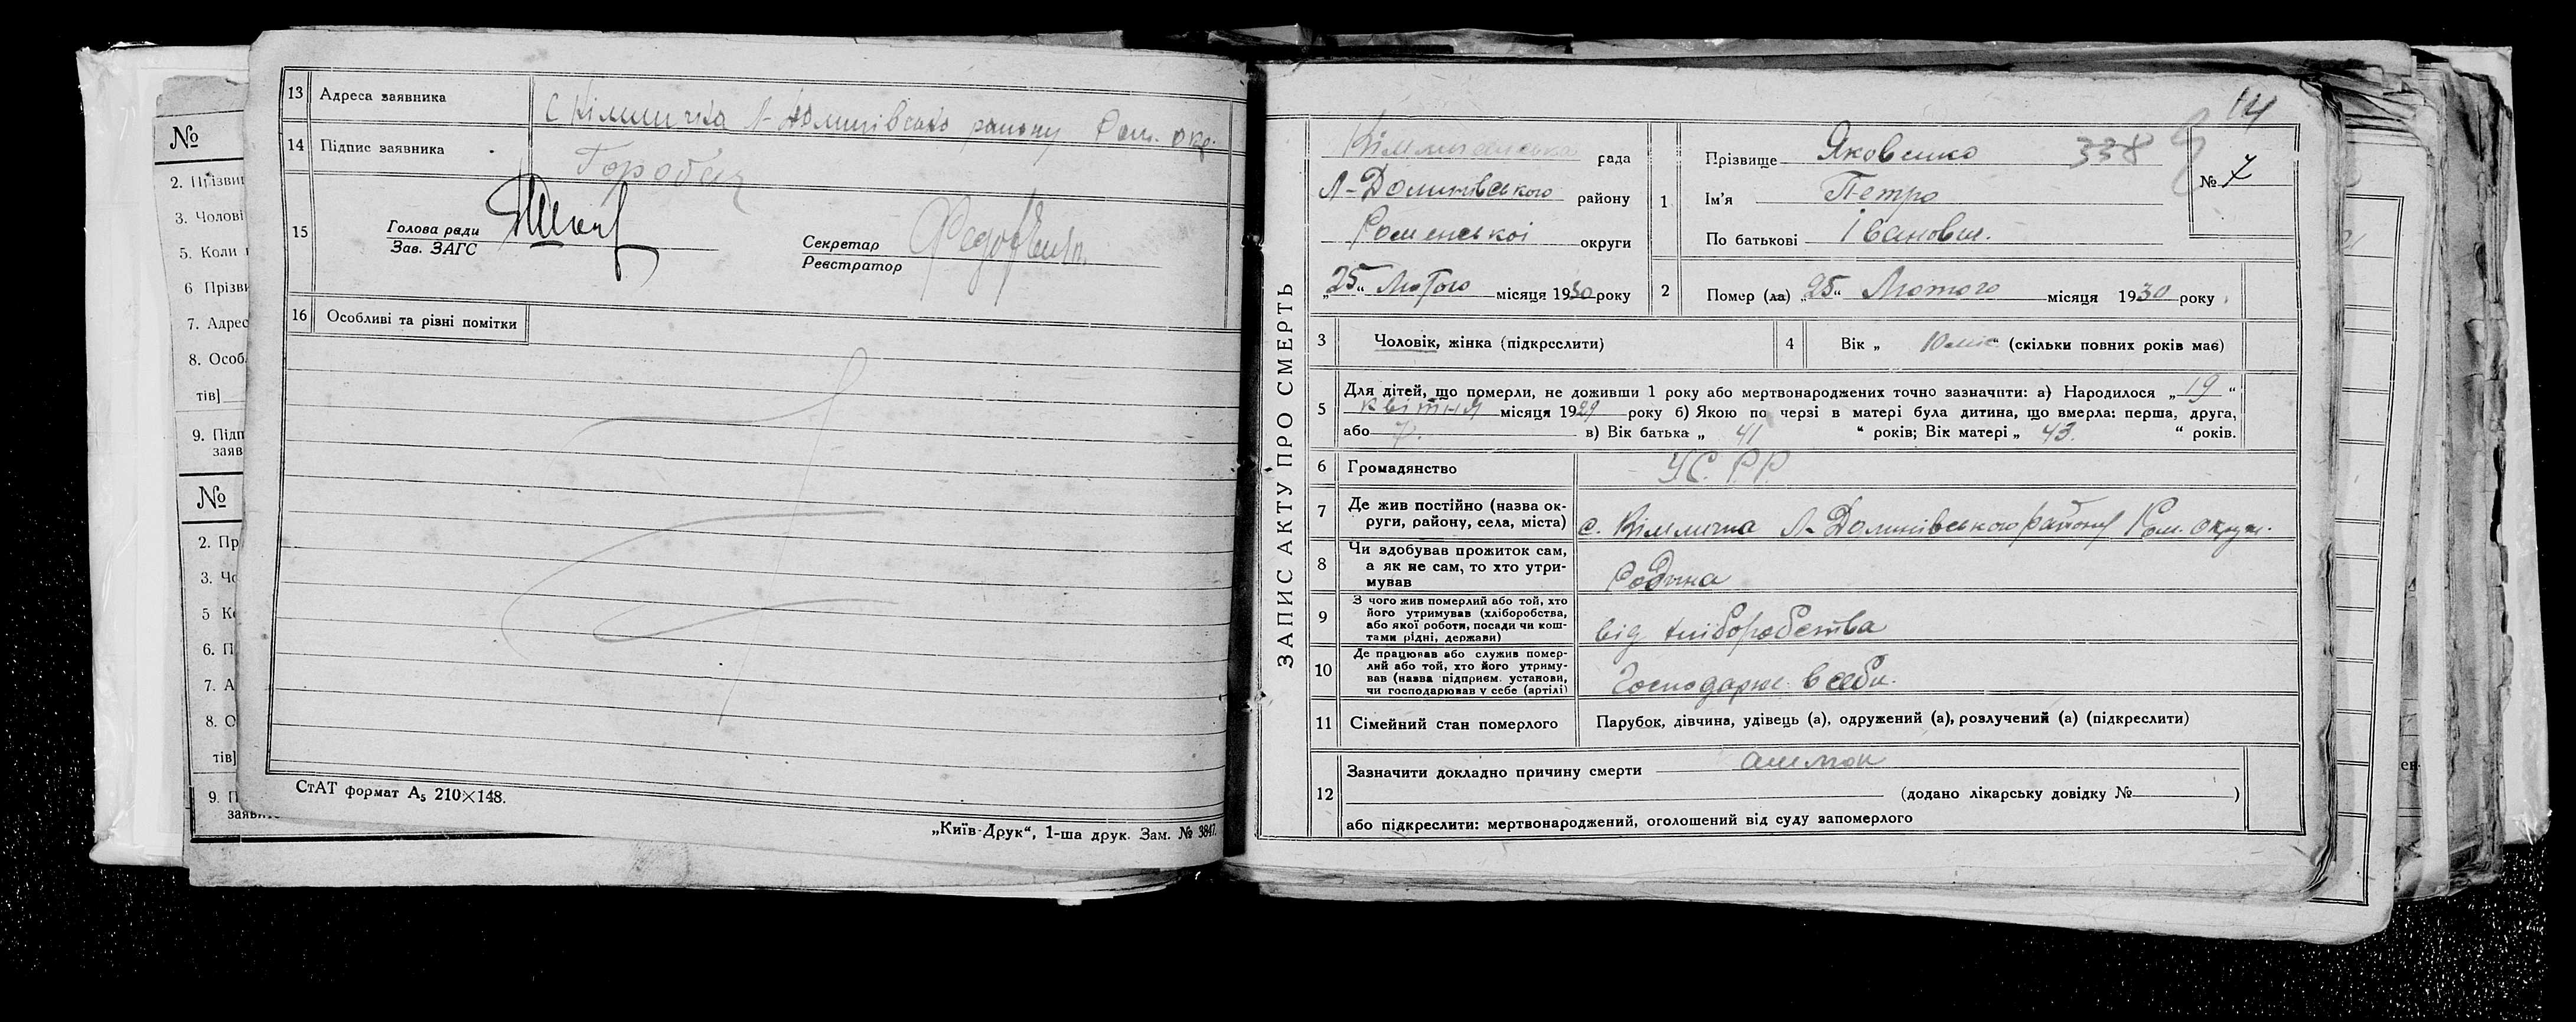 13 Адреса заявника С Кімлична Л-Долинівсько району Ром. окр.
14 Підпис заявника
15 Голова ради
Зав. ЗАГС
Секретар
Реєстратор
16 Особливі та різні помітки
СтАТ формат А₅ 210×148.
„Київ-Друк“, 1-ша друк. Зам. № 3847.
№
2. Прізви
3. Чолові
5. Коли
6 Прізви
7. Адрес
8. Особ.
тів]
9. Підп
заяв
№
2. Пр
3. Чо
5 Ко
6. П
7. А
8. О
тів]
9. П
14
ЗАПИС АКТУ ПРО СМЕРТЬ
рада
Л-Долинівського району
Роменської округи
„25“ Лютого місяця 1930 року
1 Прізвище Яковенко 338
Ім'я Петро
По батькові Іванович.
№ 7
2 Помер (ла) „25“ Лютого місяця 1930 року
3 Чоловік, жінка (підкреслити)
4 Вік „ 10 міс “ (скільки повних років має)
5 Для дітей, що померли, не доживши 1 року або мертвонароджених точно зазначити: а) Народилося „19“
квітня місяця 1929 року б) Якою по черзі в матері була дитина, що вмерла: перша, друга,
або 7. в) Вік батька „ 41 “ років; Вік матері „ 43. “ років.
6 Громадянство У.С.Р.Р.
7 Де жив постійно (назва ок-
руги, району, села, міста) с. Кімлична Л-Долинівського району Ром. округи.
8 Чи здобував прожиток сам,
а як не сам, то хто утри-
мував Родина
9 З чого жив померлий або той, хто
його утримував (хліборобства,
або якої роботи, посади чи кош-
тами рідні, держави) від хліборобства
10 Де працював або служив помер-
лий або той, хто його утриму-
вав (назва підприєм. установи,
чи господарював у себе (артілі) в себе.
11 Сімейний стан померлого Парубок, дівчина, удівець (а), одружений (а), розлучений (а) (підкреслити)
12 Зазначити докладно причину смерти
(додано лікарську довідку № )
або підкреслити: мертвонароджений, оголошений від суду запомерлого